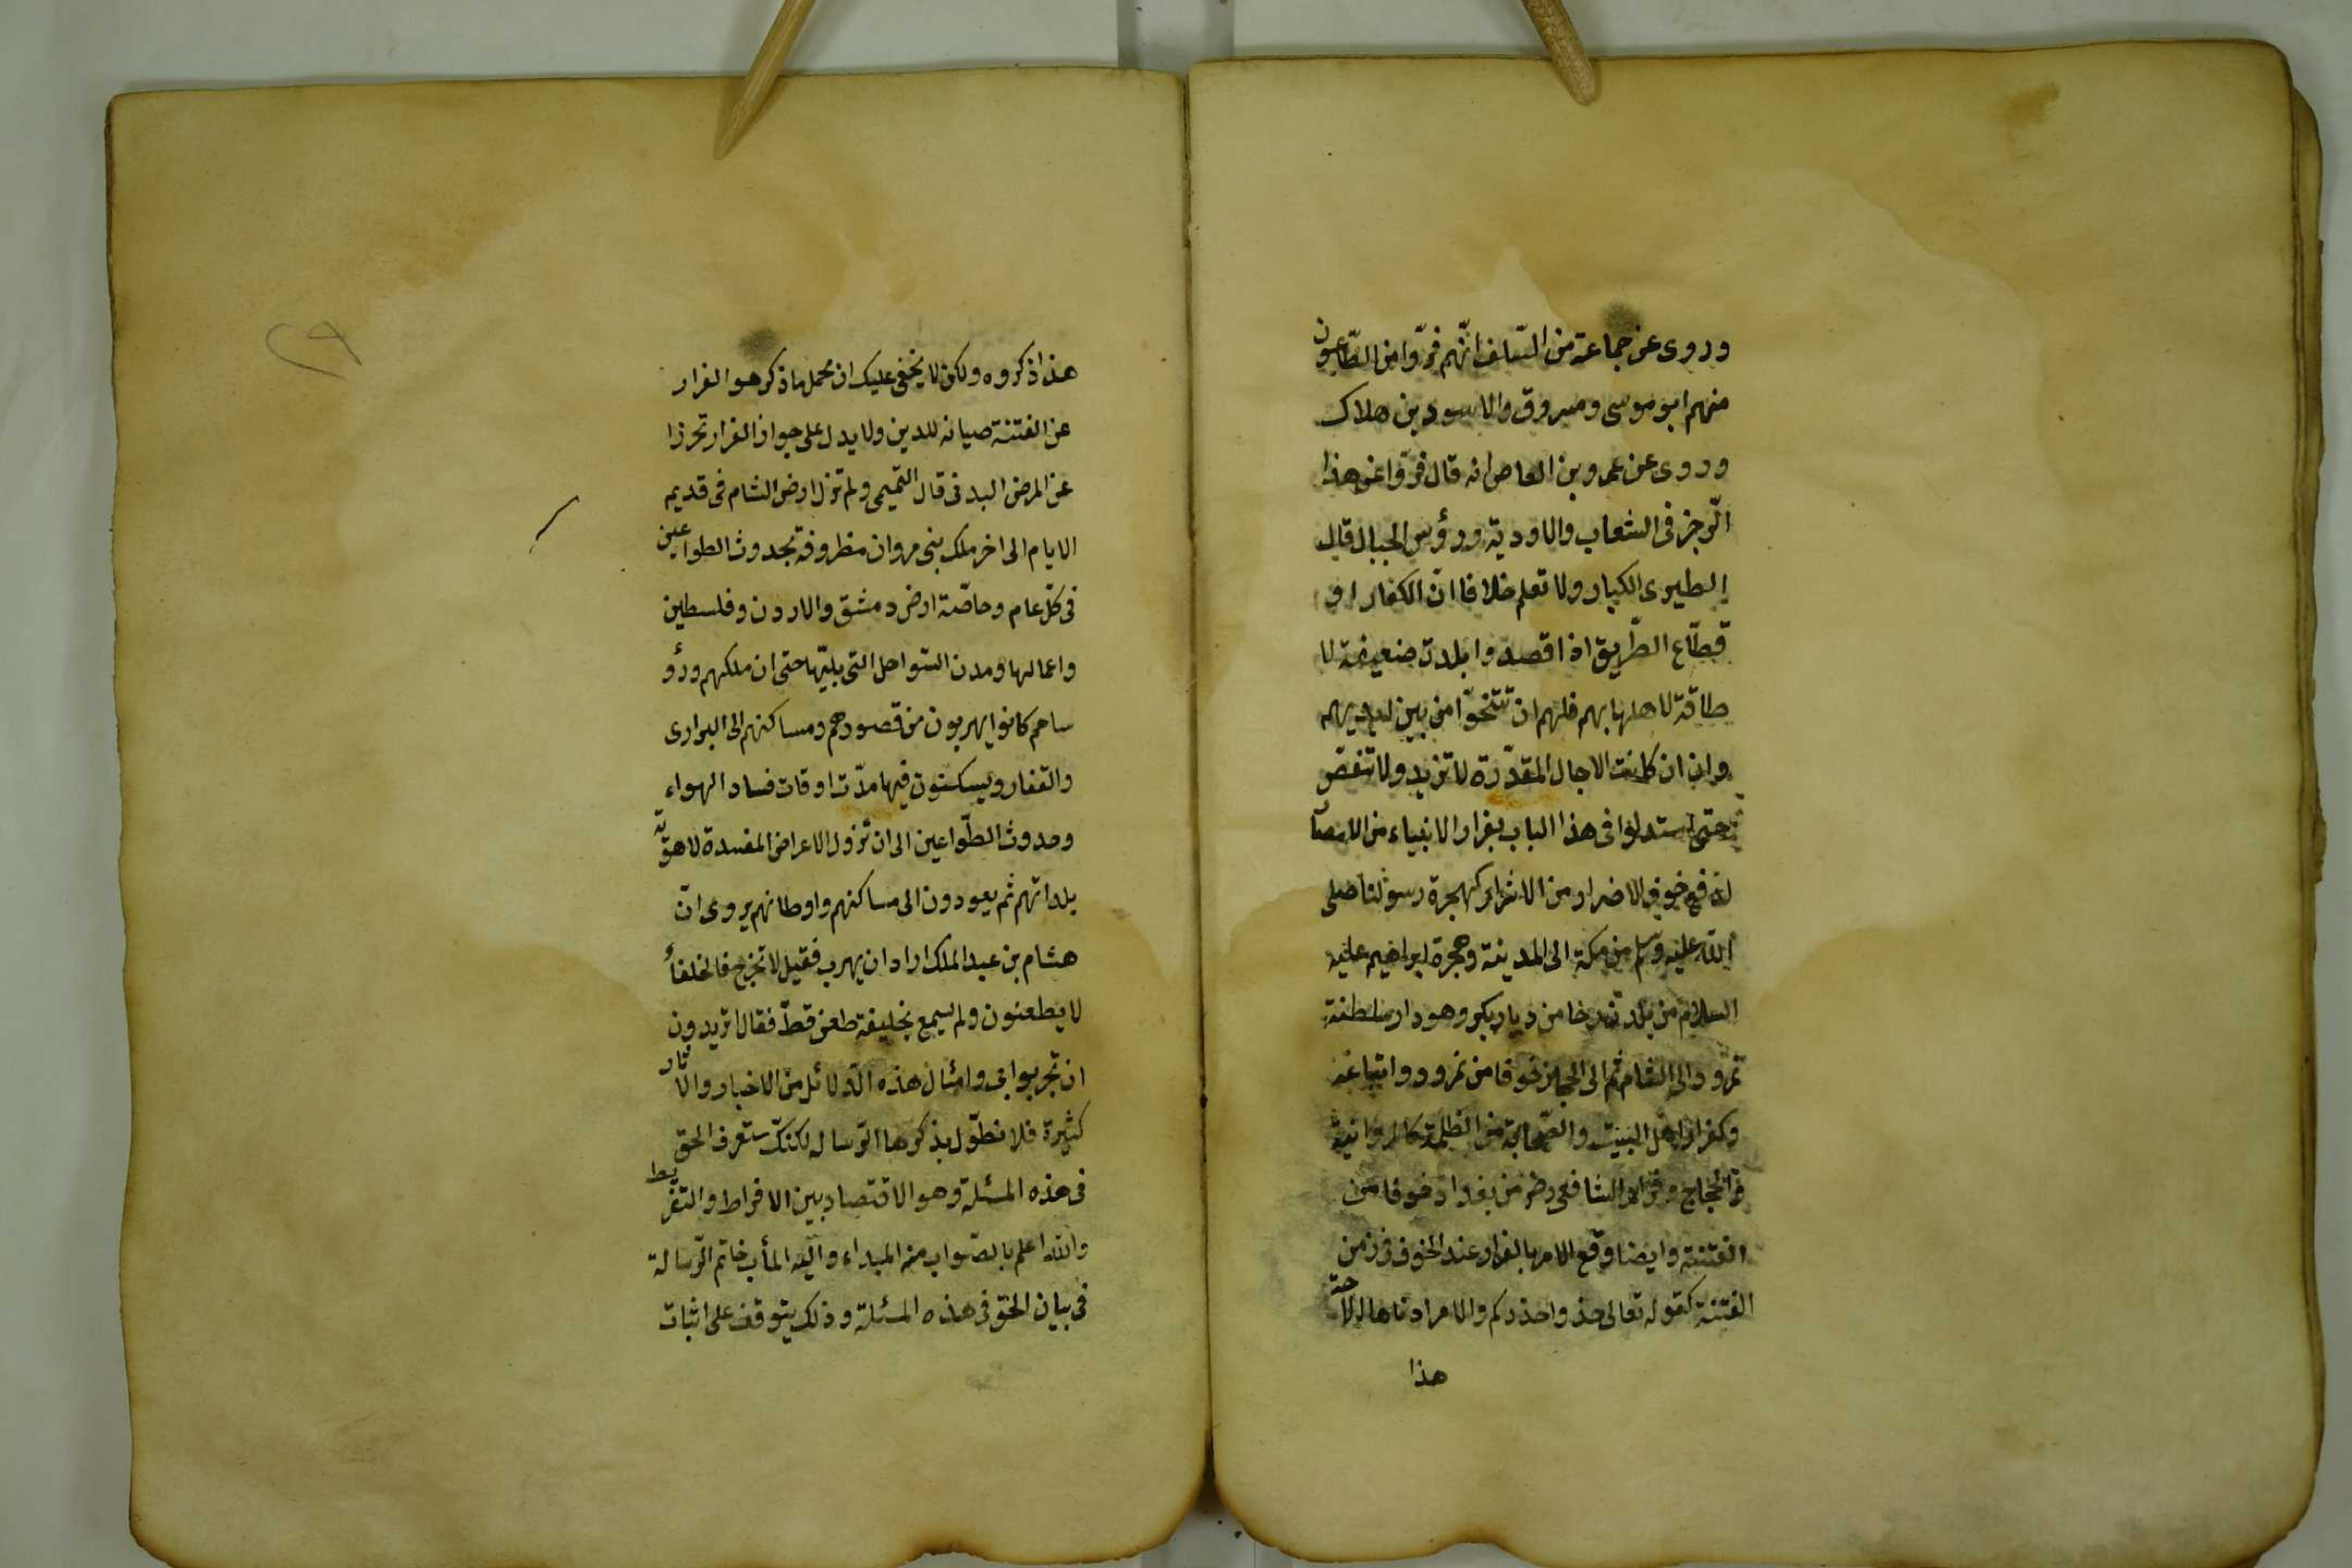 وروى عن جماعة من السّلف انّهم فرّوا من الطّاعون
منهم ابو موسى ومسروق والاسود بن هلاك
وروى عن عمرو بن العاص انه قال فرّوا عن هذا
الرّجز فى الشعاب والاودية ورؤس الجبال قال
الطبرى الكبار ولا تعلم خلافا انّ الكفار او
قطّاع الطّريق اذا قصدوا بلدة ضعيفة لا
طاقة لاهلها بهم فلهم ان تتنحّوا من بين ايديهم
وان كانت الاجال المقدّرة لا تزيد ولا تنقص
حتى استدلوا فى هذا الباب بفرار الانبياء من
خوف الاضرار من الاشرار كهجرة رسولنا صلى
الله عليه وسلم من مكة الى المدينة وهجرة ابراهيم عليه
السلام من بلدة من ديار بكر وهو دار سلطنة
نمرود الى الشام ثم الى خوفا من نمرود واتباعه
وكفرار اهل البيت والصّحابة من الظلمة
الحجاج الشافعى رضى من بغداد خوفا من
الفتنة وايضا وقع الامر بالفرار عند الخوف من
الفتنة كقوله تعالى خذوا حذركم والامر ادناها
هذا
٢٩
هذا ذكروه ولكن لا يخفى عليك ان محمل ما ذكر هو الفرار
عن الفتنة صيانه للدين ولا يدل على جواز الفرار تحرزا
عن المرض البدنى قال التميمى ولم تزل ارض الشام فى قديم
الايام الى اخر ملك بنى مروان مطروقة بحدوث الطواعين
فى كلّ عام وخاصّة ارض دمشق والاردن وفلسطين
واعمالها ومدن السّواحل التى يليّها حتى ان ملكهم ورؤ
ساهم كانوا يهربون من قصورهم ومساكنهم الى البرارى
والقفار ويسكنون فيها مدّت اوقات فساد الهواء
وحدوث الطّواعين الى ان تزول الاعراض المفسدة لاهويّة
بلدانهم ثم يعودون الى مساكنهم واوطانهم يروى انّ
هشام بن عبد الملك اراد ان يهرب فقيل لا تخرج فالخلفاء
لا يطعنون ولم يسمع بخليفة طعن قطّ فقال اتريدون
ان تجربوا بى وامثال هذه الدّلائل من الاخبار والاثار
كثيرة فلا نطوّل بذكرها الرّساله لكنك ستعرف الحق
فى هذه المسئلة وهو الاقتصاد بين الافراط والتفريط
والله اعلم بالصّواب منه المبداء واليه المأب خاتم الرّسالة
فى بيان الحق فى هذه المسئلة وذلك يتوقف على اثبات